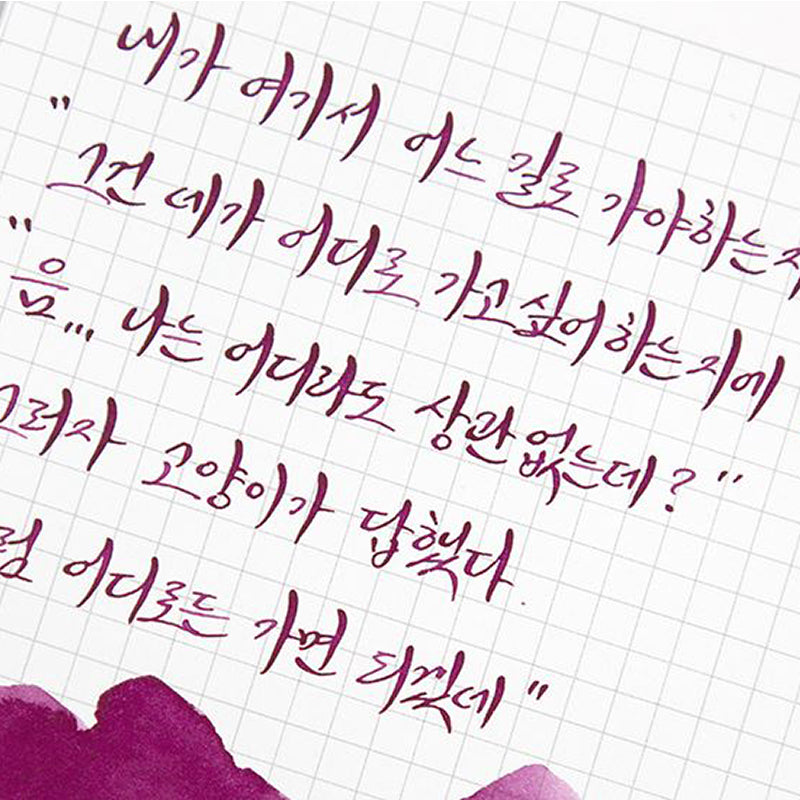 내가 여기서 어느 길로 가야하는지
"그건 네가 어디로 가고싶어하는지에
"음... 나는 어디라도 상관없는데?"
그러자 고양이가 답했다.
럼 어디로든 가면 되겠네"